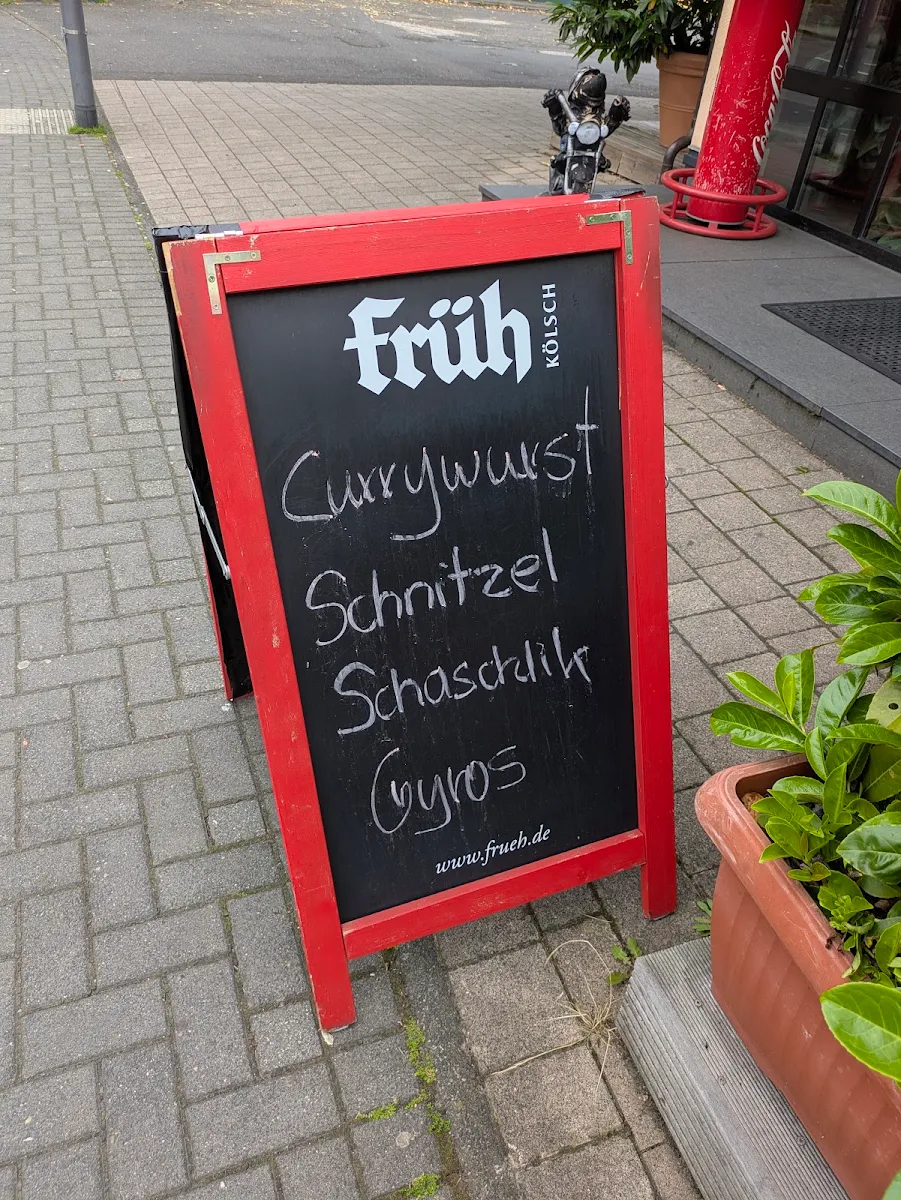 Früh KÖLSCH
Currywurst
Schnitzel
Schaschlik
Gyros
www.frueh.de
Coca-Cola